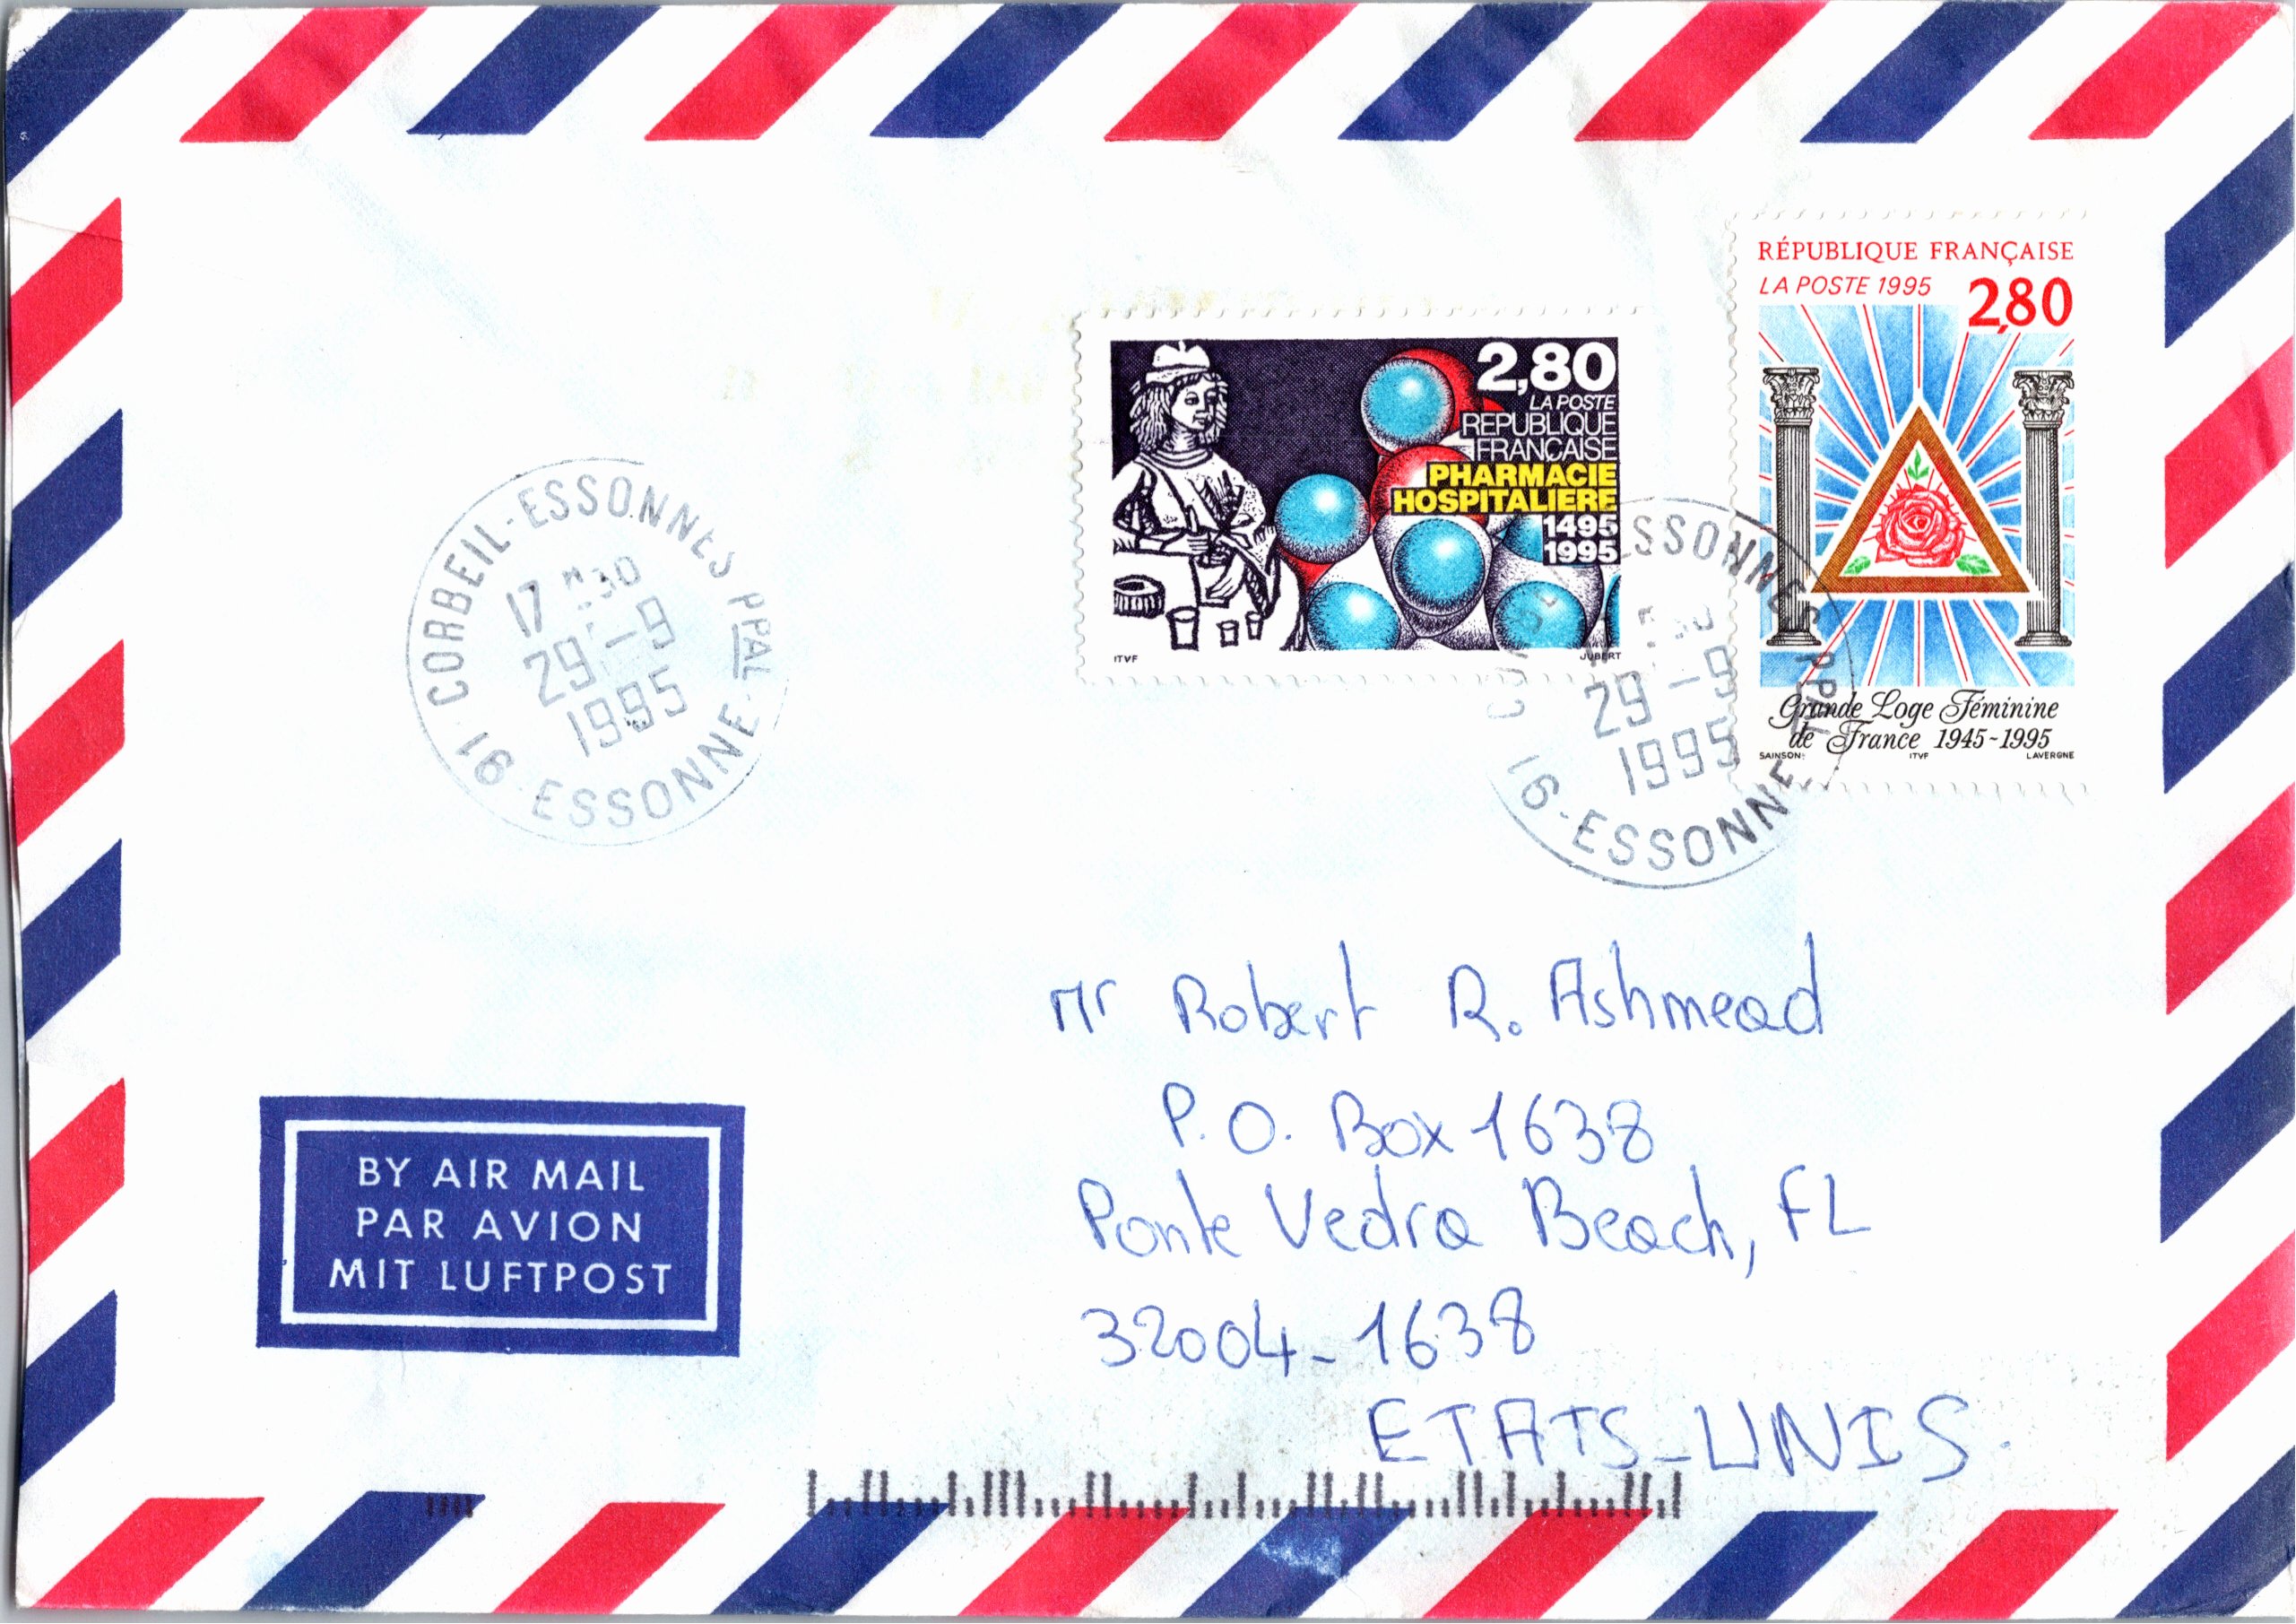 RÉPUBLIQUE FRANÇAISE
LA POSTE 1995
2,80
Grande Loge Féminine
de France 1945~1995
SAINSON ITVF LAVERGNE
2,80
LA POSTE
REPUBLIQUE
FRANÇAISE
PHARMACIE
HOSPITALIERE
1495
1995
ITVF JUBERT
91 CORBEIL-ESSONNES PPAL
17 H 30
29 -9
1995
ESSONNE
ESSONNES PPAL
29 -9
1995
91 - ESSONNE
Mr Robert R. Ashmead
P.O. Box 1638
Ponte Vedra Beach, FL
32004-1638
ETATS-UNIS
BY AIR MAIL
PAR AVION
MIT LUFTPOST